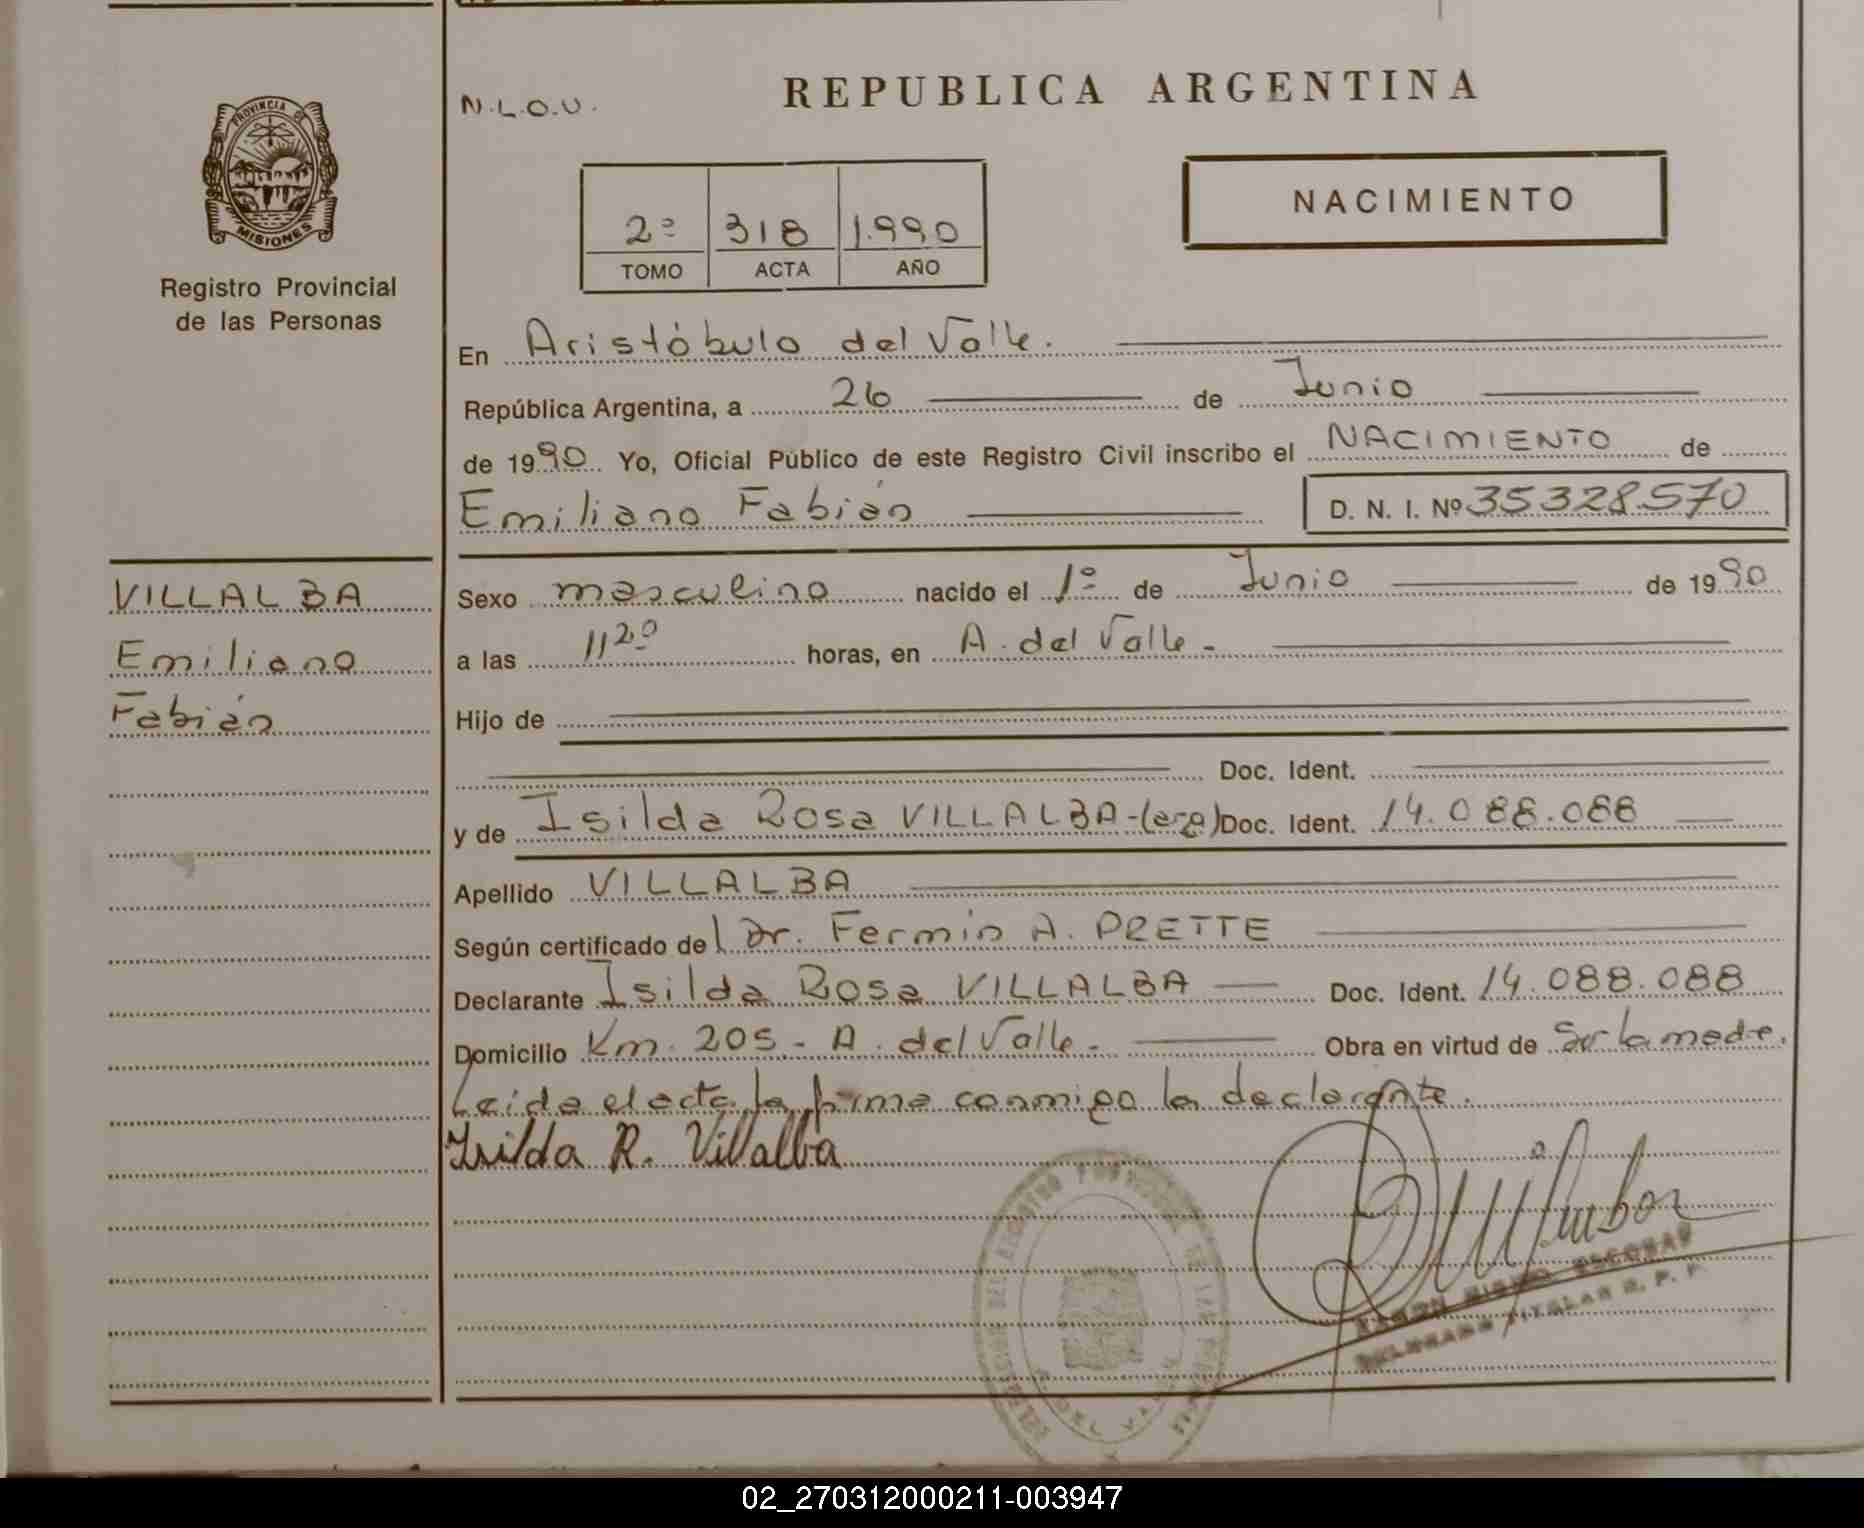 N.L.O.U.
REPUBLICA ARGENTINA
PROVINCIA DE
MISIONES
Registro Provincial
de las Personas
NACIMIENTO
2º 318 1.990
TOMO ACTA AÑO
En Aristóbulo del Valle.
República Argentina, a 26 de Junio
de 1990 Yo, Oficial Público de este Registro Civil inscribo el NACIMIENTO de
Emiliano Fabián D. N. I. Nº 35328.570
VILLALBA
Emiliano
Fabián
Sexo masculino nacido el 1º de Junio de 1990
a las 11 20 horas, en A. del Valle -
Hijo de
Doc. Ident.
y de Isilda Rosa VILLALBA - (arg) Doc. Ident. 14.088.088
Apellido VILLALBA
Según certificado del Dr. Fermin A. PRETTE
Declarante Isilda Rosa VILLALBA Doc. Ident. 14.088.088
Domicilio Km. 205 - A. del Valle - Obra en virtud de Ser la madre.
Leida el acta la firma conmigo la declarante.
Isilda R. Villalba
ESCOBAR
TITULAR R. P. P.
02_270312000211-003947